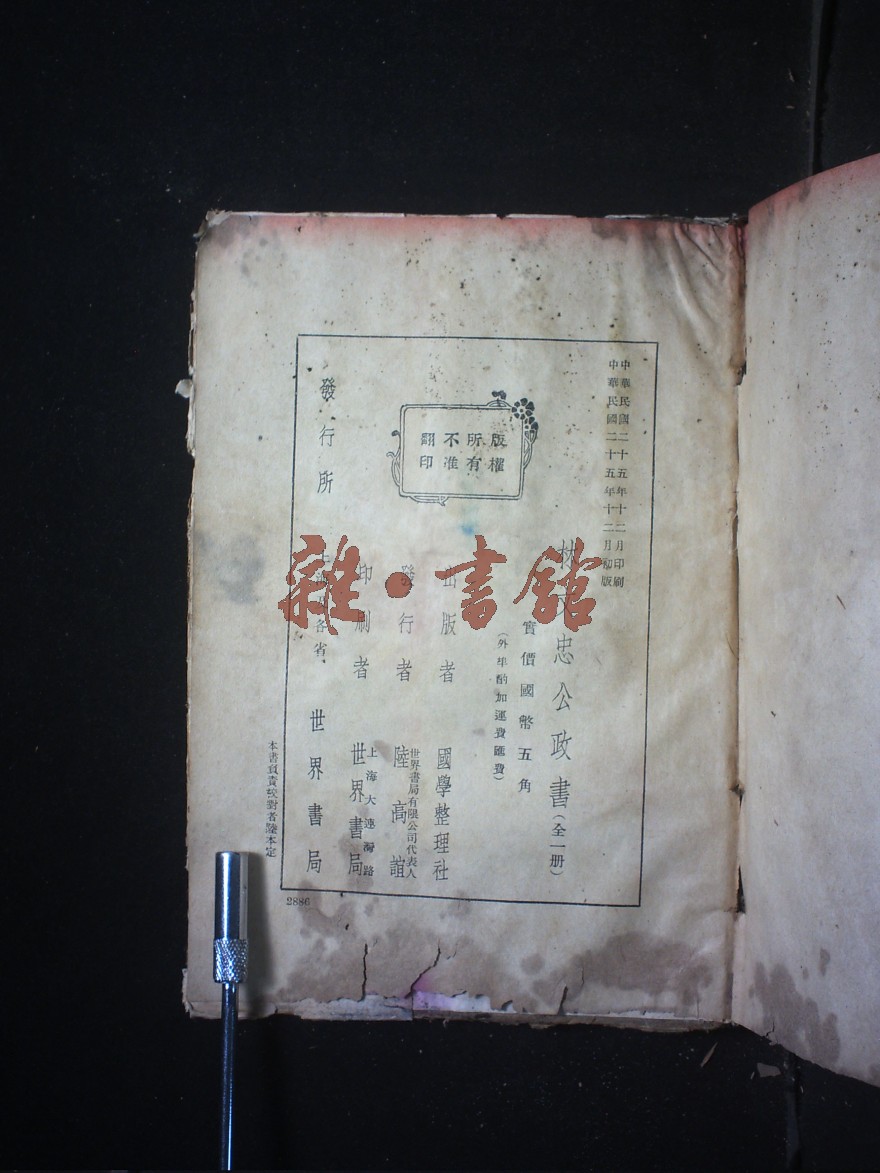 中華民國二十五年十二月印刷
中華民國二十五年十二月初版
林文忠公政書(全一册)
實價國幣五角
(外埠酌加運費匯費)
版權
所有
不准
翻印
出版者 國學整理社
發行者 世界書局有限公司代表人
陸高誼
印刷者 上海大連灣路
世界書局
發行所 上海及各省 世界書局
本書負責校對者陸本定
2886
雜·書館